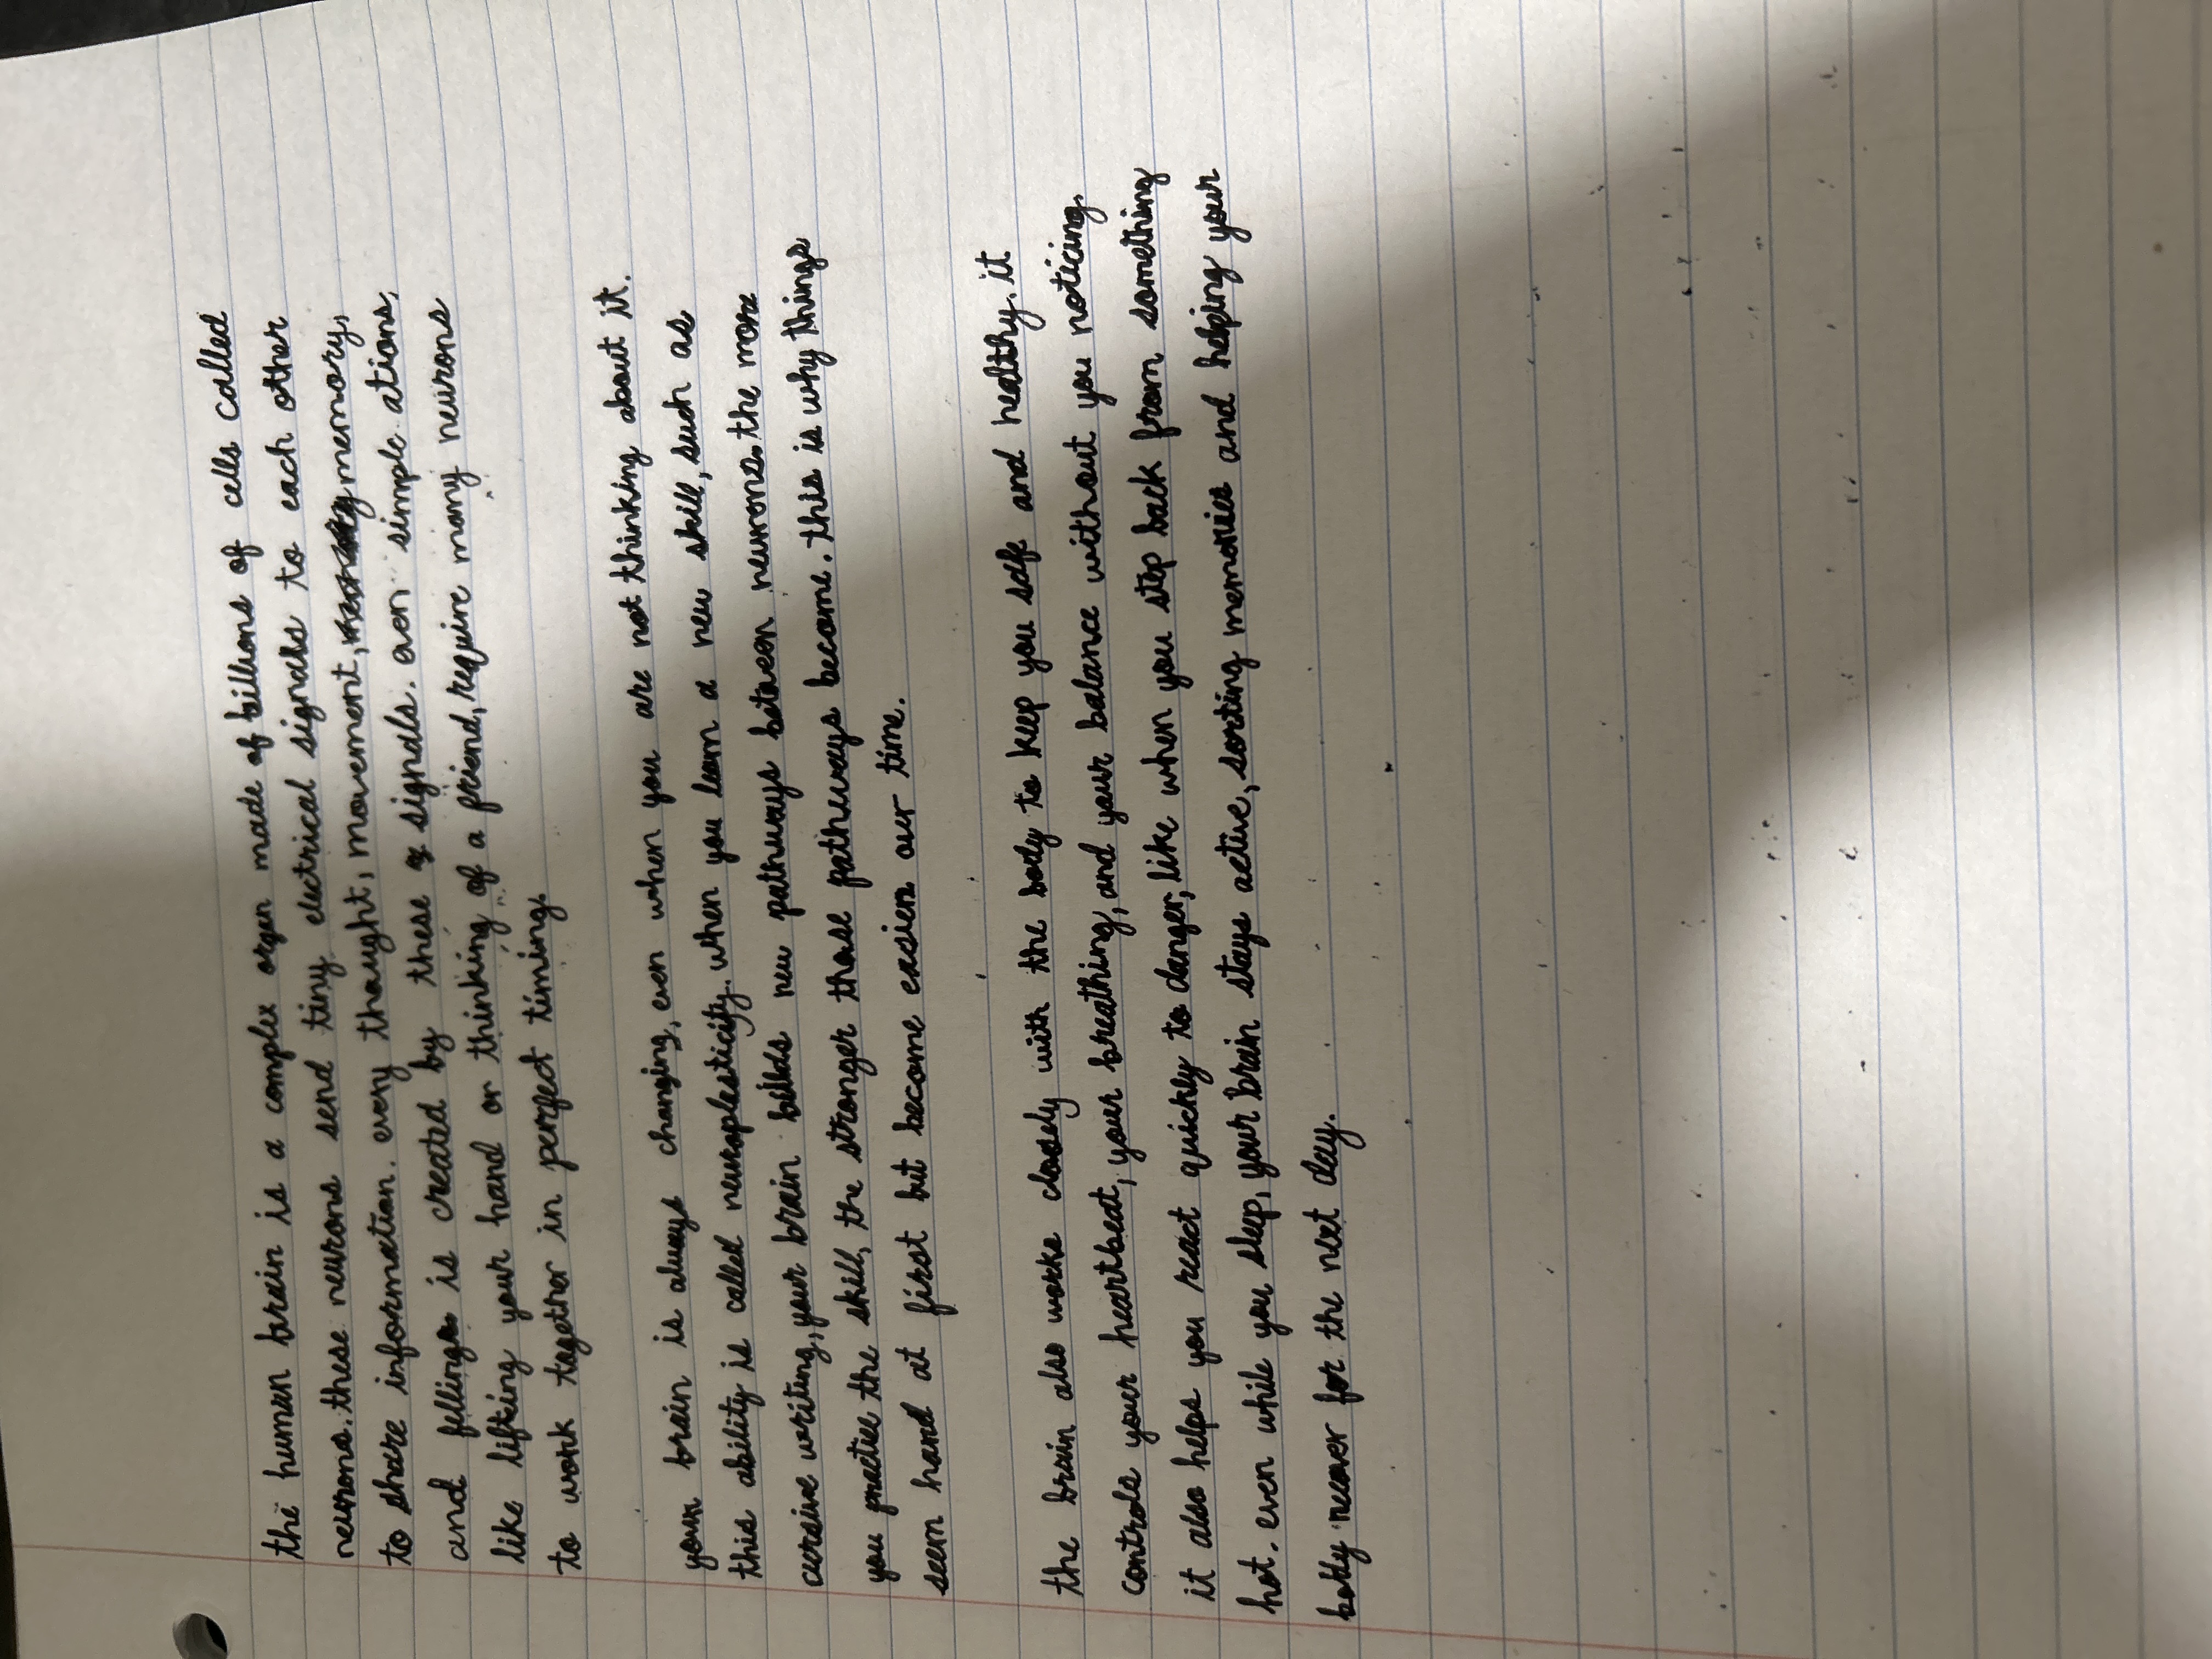 the human brain is a complex organ made of billions of cells called
neurons. these neurons send tiny electrical signals to each other
to share information. every thought, movement, memory,
and felling is created by these signals. even simple ations,
like lifting your hand or thinking of a friend, require many neurons
to work together in perfect timing.
your brain is always changing, even when you are not thinking about it.
this ability is called neuroplesticity. when you learn a new skill, such as
cursive writing, your brain builds new pathways between neurons. the more
you practice the skill, the stronger those pathways become. this is why things
seem hard at first but become easier over time.
the brain also works closely with the body to keep you safe and healthy. it
controls your heartbeat, your breathing, and your balance without you noticing.
it also helps you react quickly to danger, like when you step back from something
hot. even while you sleep, your brain stays active, sorting memories and helping your
body recover for the next day.